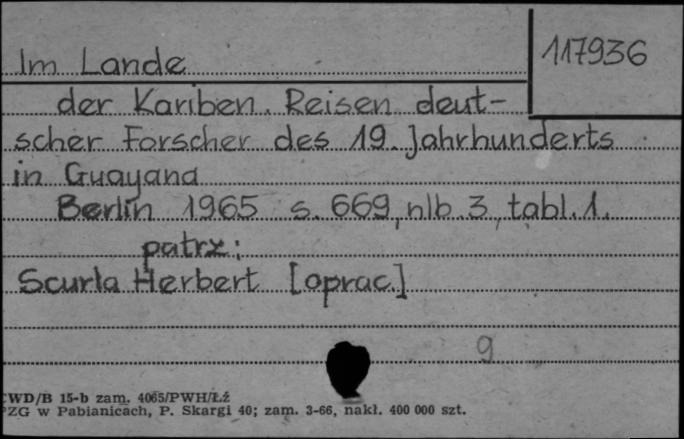 Im Lande
117936
der Kariben. Reisen deut-
scher Forscher des 19. Jahrhunderts
in Guayana
Berlin 1965 s. 669, nlb. 3, tabl. 1.
patrz:
Scurla Herbert [oprac.]
9
CWD/B 15-b zam. 4065/PWH/Łź
PZG w Pabianicach, P. Skargi 40; zam. 3-66, nakł. 400 000 szt.